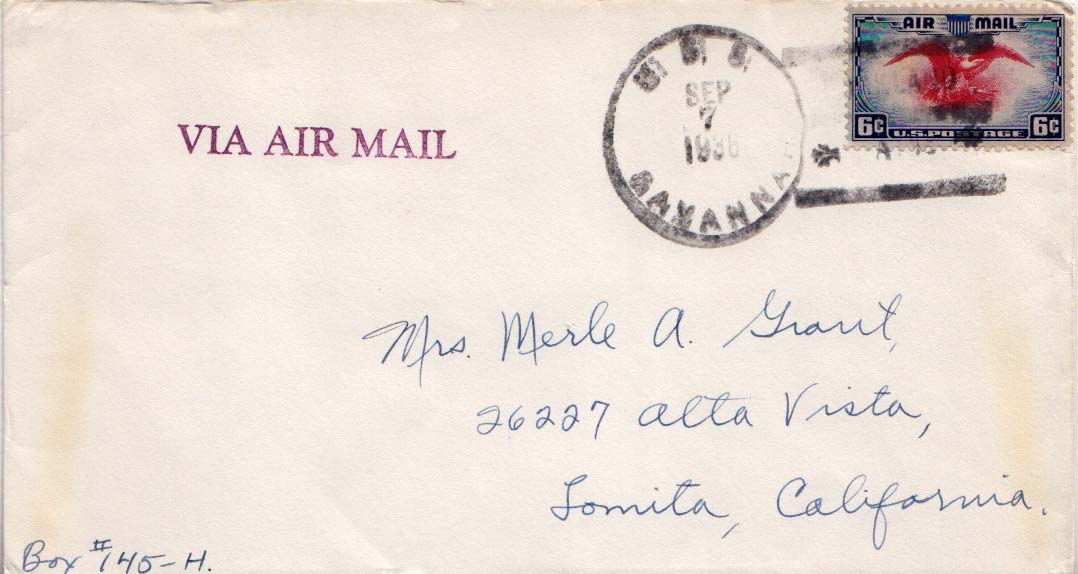 AIR MAIL
6¢ U.S.POSTAGE 6¢
U. S. S.
SEP
7
SAVANNA
VIA AIR MAIL
Mrs. Merle A. Grant,
26227 Alta Vista,
Lomita, California.
Box #145-H.